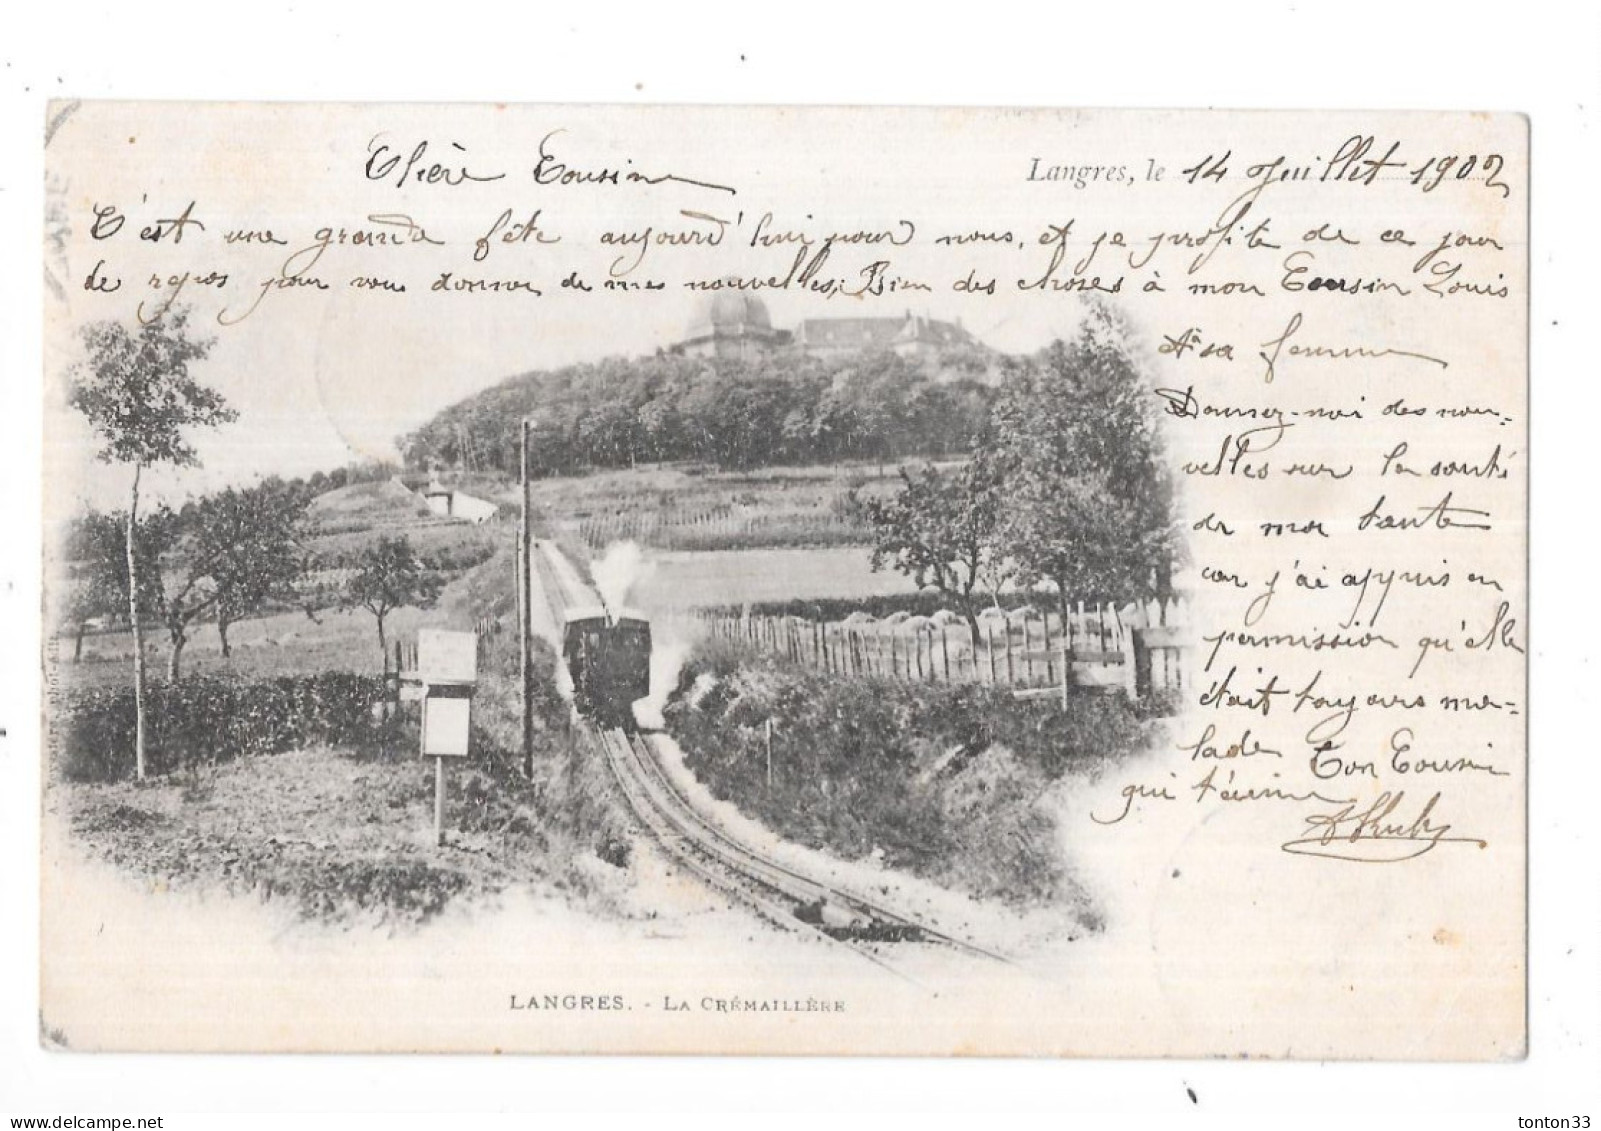 Langres, le 14 Juillet 1902
Chère Cousine
C'est une grande fête aujourd'hui pour nous, et je profite de ce jour
de repos pour vous donner de mes nouvelles, Bien des choses à mon Cousin Louis
A sa femme
Donnez-moi des nou-
velles sur la santé
de ma tante
car j'ai appris en
permission qu'elle
était toujours ma-
lade Ton Cousin
qui t'aime
LANGRES. - LA CRÉMAILLÈRE
tonton33